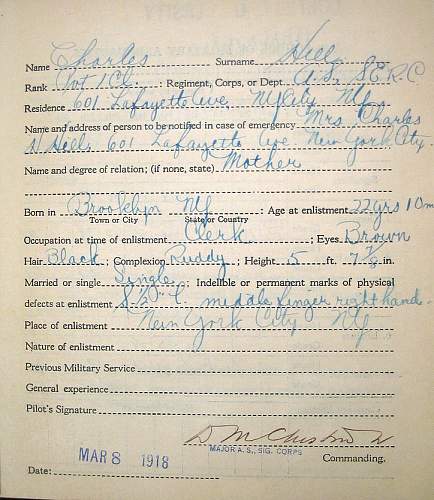 Name Charles Surname Hills
Rank Pvt 1Cl : Regiment, Corps, or Dept. A.S. S.E.R.C
Residence 601 Lafayette Ave. NYCity NY.
Name and address of person to be notified in case of emergency Mrs. Charles
Hills 601 Lafayette Ave New York City.
Name and degree of relation; (if none, state) Mother
Born in Brooklyn NY : Age at enlistment 22 yrs 10 m
Town or City State or Country
Occupation at time of enlistment Clerk ; Eyes Brown
Hair Black ; Complexion Ruddy ; Height 5 ft. 7 7/8 in.
Married or single Single : Indelible or permanent marks of physical
defects at enlistment middle finger right hand.
Place of enlistment New York City NY
Nature of enlistment
Previous Military Service
General experience
Pilot's Signature
MAJOR A. S., SIG. CORPS
Commanding.
MAR 8 1918
Date: